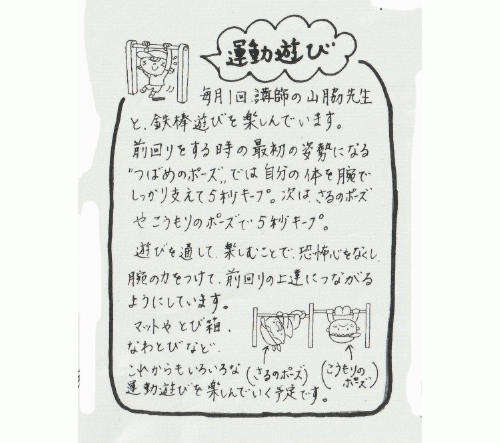 運動遊び
毎月1回、講師の山脇先生
と、鉄棒遊びを楽しんでいます。
前回りをする時の最初の姿勢になる
"つばめのポーズ"では自分の体を腕で
しっかり支えて5秒キープ。次は、さるのポーズ
やこうもりのポーズで5秒キープ。
遊びを通して、楽しむことで、恐怖心をなくし、
腕の力をつけて、前回りの上達につながる
ようにしています。
マットやとび箱、
なわとびなど、
これからもいろいろな
運動遊びを楽しんでいく予定です。
(さるのポーズ)
(こうもりの
ポーズ)